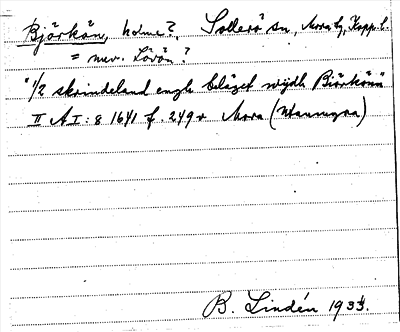 Björkön, holme?, Sollerö sn, Mora tg, Kopp. l.
= nuv. Lövön?
"1/2 skrindeland engh beläget wijdh Biörkönn"
II A I: 8 1641 f. 249 v Mora (Wamngra)
B. Lindén 1934.